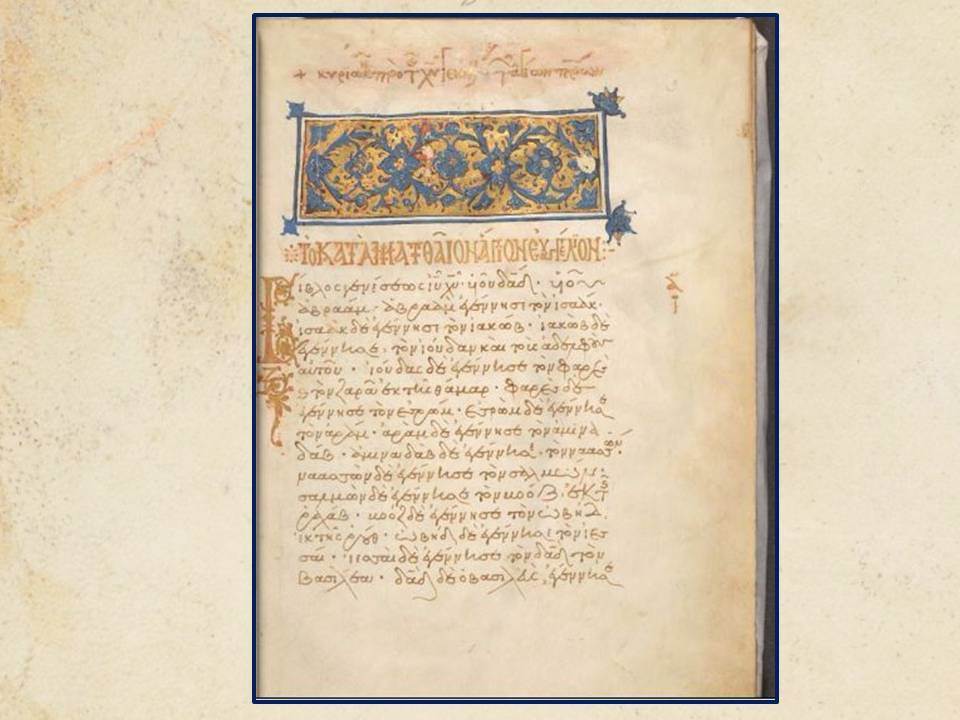 + κυριακῆ πρὸ τ χυ
ΤὸΚΑΤᾺ ΜΑΤΘΑῖΟΝ ἍΓΙΟΝ
Βίβλος γενέσεως ιυ χυ · υἱοῦ δαδ · υἱοῦ
ἀβραάμ · ἀβραὰμ ἐγέννησε τὸν ἰσαάκ ·
ἰσαὰκ δὲ ἐγέννησε τὸν ἰακώβ · ἰακὼβ δὲ
ἐγέννησε τὸν ἰούδαν καὶ τοὺς ἀδελφοὺς
αὐτοῦ · ἰούδας δὲ ἐγέννησε τὸν φαρὲς
τὸν ζαρὰ ἐκ τῆς θάμαρ · φαρὲς δὲ
ἐγέννησε τὸν ἐσρώμ · ἐσρὼμ δὲ ἐγέννησε
τὸν ἀράμ · ἀρὰμ δὲ ἐγέννησε τὸν ἀμινα
δάβ · ἀμιναδὰβ δὲ ἐγέννησε τὸν ναασσών ·
ναασσὼν δὲ ἐγέννησε τὸν σαλμών ·
σαλμὼν δὲ ἐγέννησε τὸν βοὸζ ἐκ τ
ῥαχάβ · βοὸζ δὲ ἐγέννησε τὸν ὠβὴδ
ἐκ τῆς ῥούθ · ὠβὴδ δὲ ἐγέννησε τὸν ἰεσ
σαί · ἰεσσαὶ δὲ ἐγέννησε τὸν δαδ τὸν
βασιλέα · δαδ δὲ ὁ βασιλεὺς ἐγέννησε